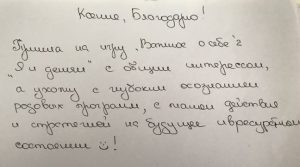 Ксение, Благодарю!
Пришла на игру „Вотное о себе"
„Я и деньги" с общим интересом,
а ухожу с глубоким осознанием
родовых программ, с планом действие
и стратегией на будущее в ресурсном
состоянии ☺!